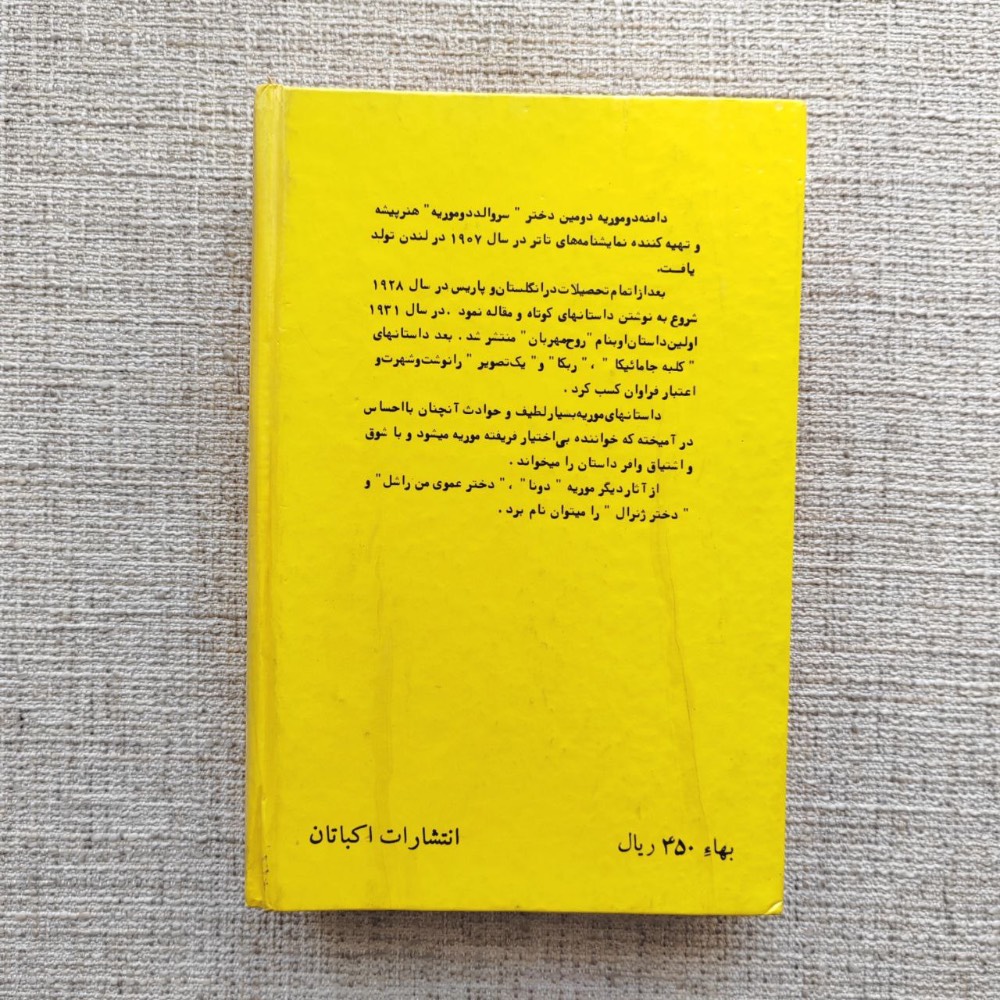 دافنه دوموریه دومین دختر " سروالد دوموریه" هنرپیشه
و تهیه کننده نمایشنامه‌های تاتر در سال ۱۹۰۷ در لندن تولد
یافت.
بعد از اتمام تحصیلات در انگلستان و پاریس در سال ۱۹۲۸
شروع به نوشتن داستانهای کوتاه و مقاله نمود . در سال ۱۹۳۱
اولین داستان او بنام "روح مهربان" منتشر شد . بعد داستانهای
" کلبه جامائیکا " ، " ربکا" و " یک تصویر " را نوشت و شهرت و
اعتبار فراوان کسب کرد .
داستانهای موریه بسیار لطیف و حوادث آنچنان با احساس
در آمیخته که خواننده بی‌اختیار فریفته موریه میشود و با شوق
و اشتیاق وافر داستان را میخواند .
از آثار دیگر موریه " دونا" ، " دختر عموی من راشل" و
" دختر ژنرال " را میتوان نام برد .
بهاء ۳۵۰ ریال
انتشارات اکباتان